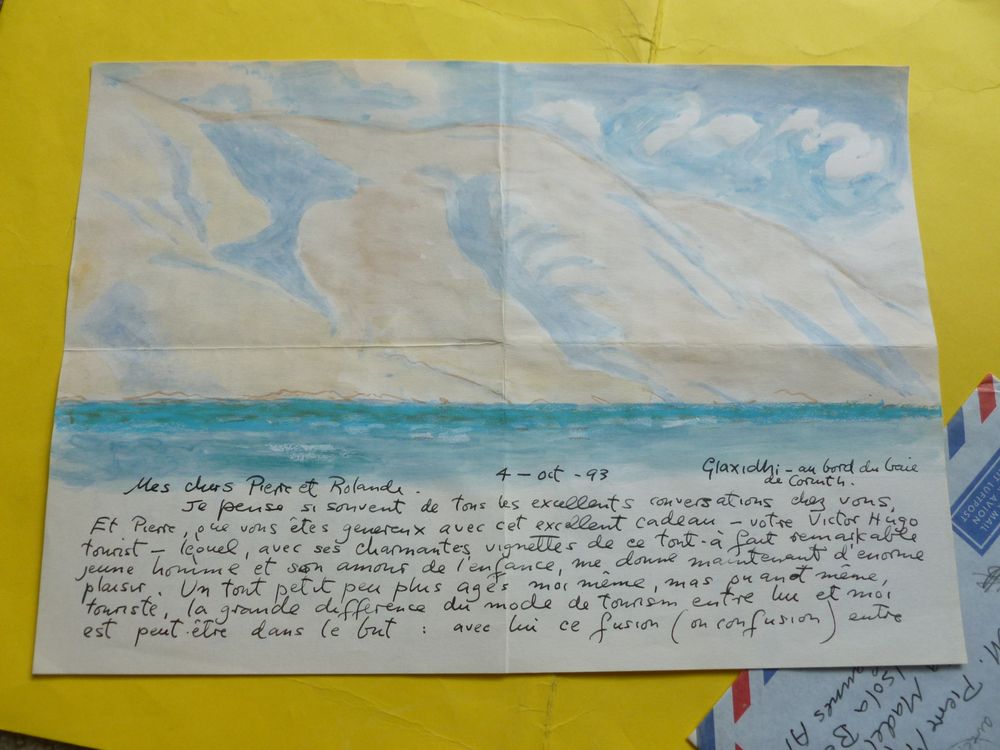 4 - oct - 93
Glaxidhi - au bord du baie
de Corinth.
Mes chers Pierre et Rolande.
Je pense si souvent de tous les excellents conversations chez vous,
Et Pierre, que vous êtes genereux avec cet excellent cadeau - votre Victor Hugo
tourist - lequel, avec ses charmantes vignettes de ce tout-à fait remarkable
jeune homme et son amours de l'enfance, me donne maintenant d'enorme
plaisir. Un tout petit peu plus agés moi même, mas quand même,
touriste, la grande difference du mode de tourism entre lui et moi
est peut-être dans le but : avec lui ce fusion (on confusion) entre
MAIL
LUFTPOST
AVION
M. Pierre
Isola